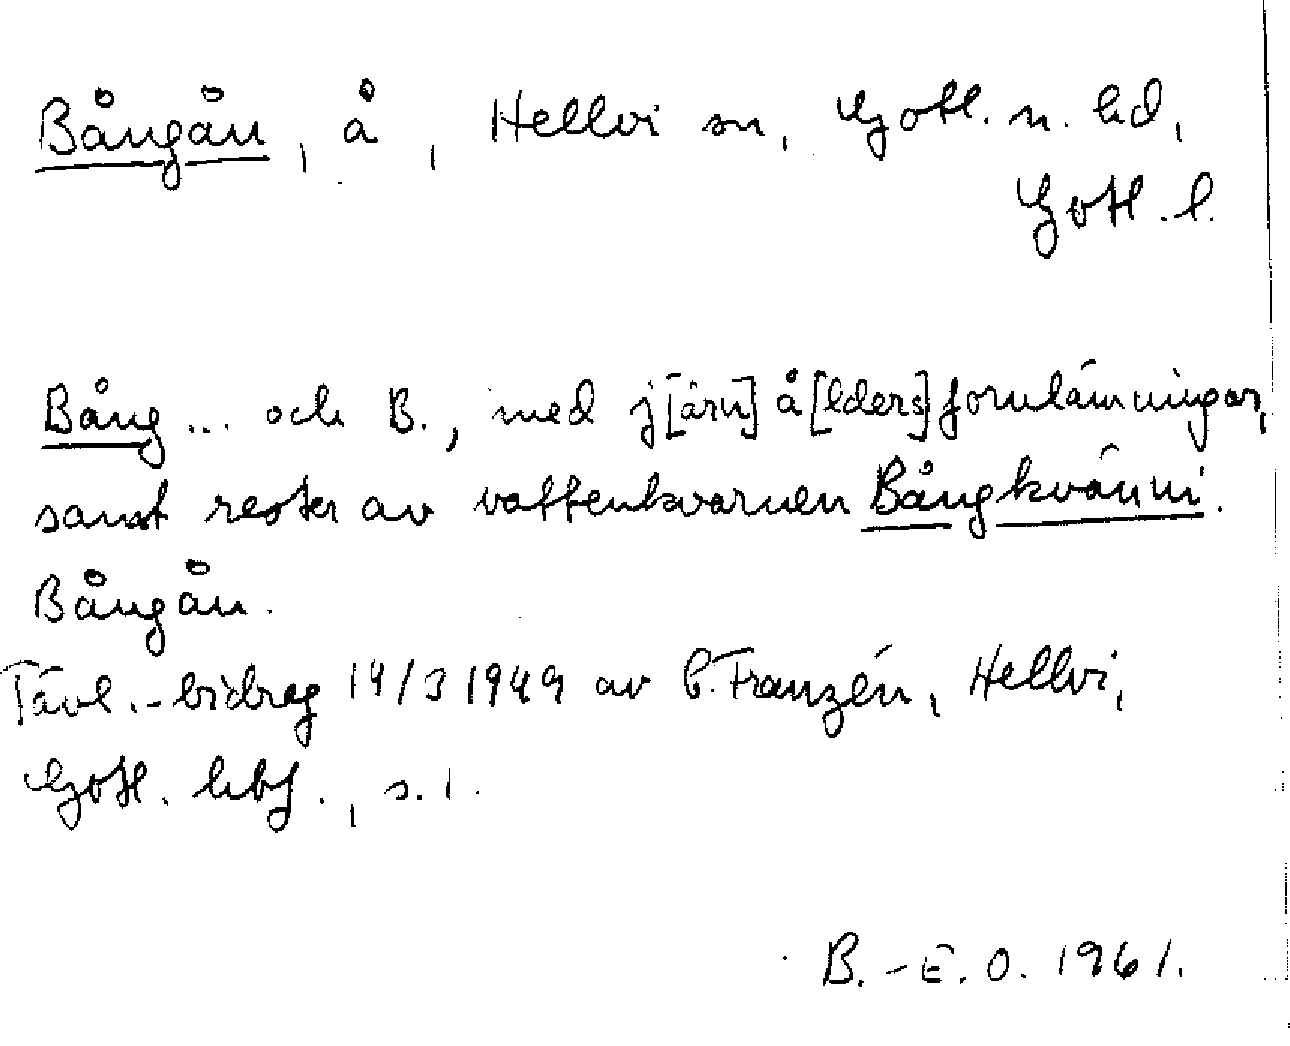 Bångån, å, Hellvi sn, Gotl. n. hd,
Gotl. l.
Bång... och B., med j[ärn]å[lders]fornlämningar,
samt rester av vattenkvarnen Bångkvänni.
Bångån.
Tävl.-bidrag 14/3 1949 av C. Franzén, Hellvi,
Gotl. hbf., s. 1.
B.-E. O. 1961.